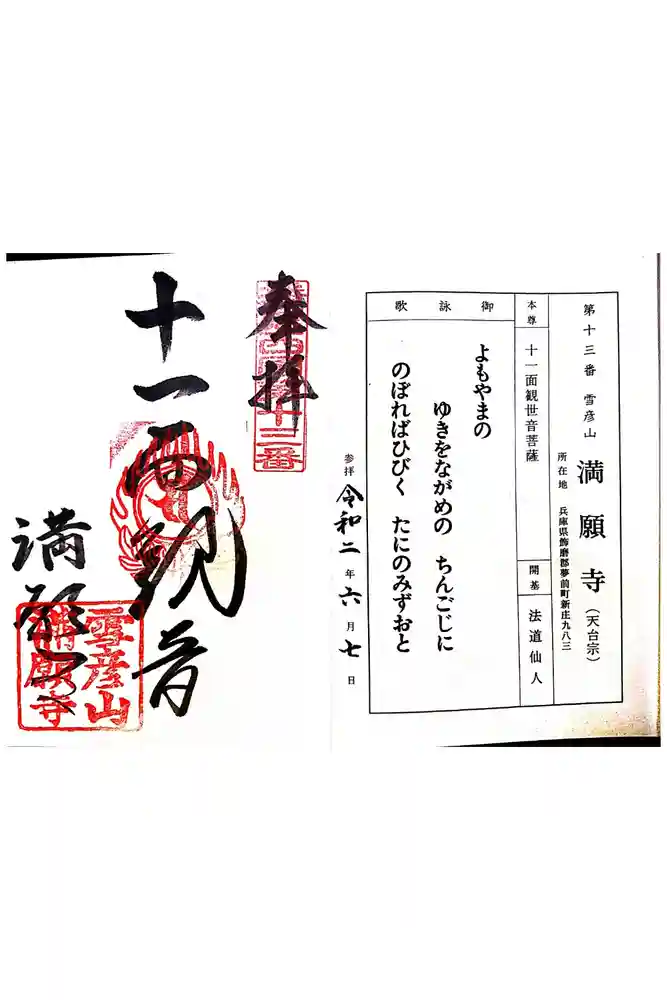 第十三番 雪彦山 満願寺 (天台宗)
所在地 兵庫県飾磨郡夢前町新庄九八三
本尊 十一面観世音菩薩
開基 法道仙人
御詠歌
よもやまの
ゆきをながめの ちんごじに
のぼればひびく たにのみずおと
参拝 令和二年六月七日
奉拝
十三番
十一面観音
満願寺
雪彦山
満願寺